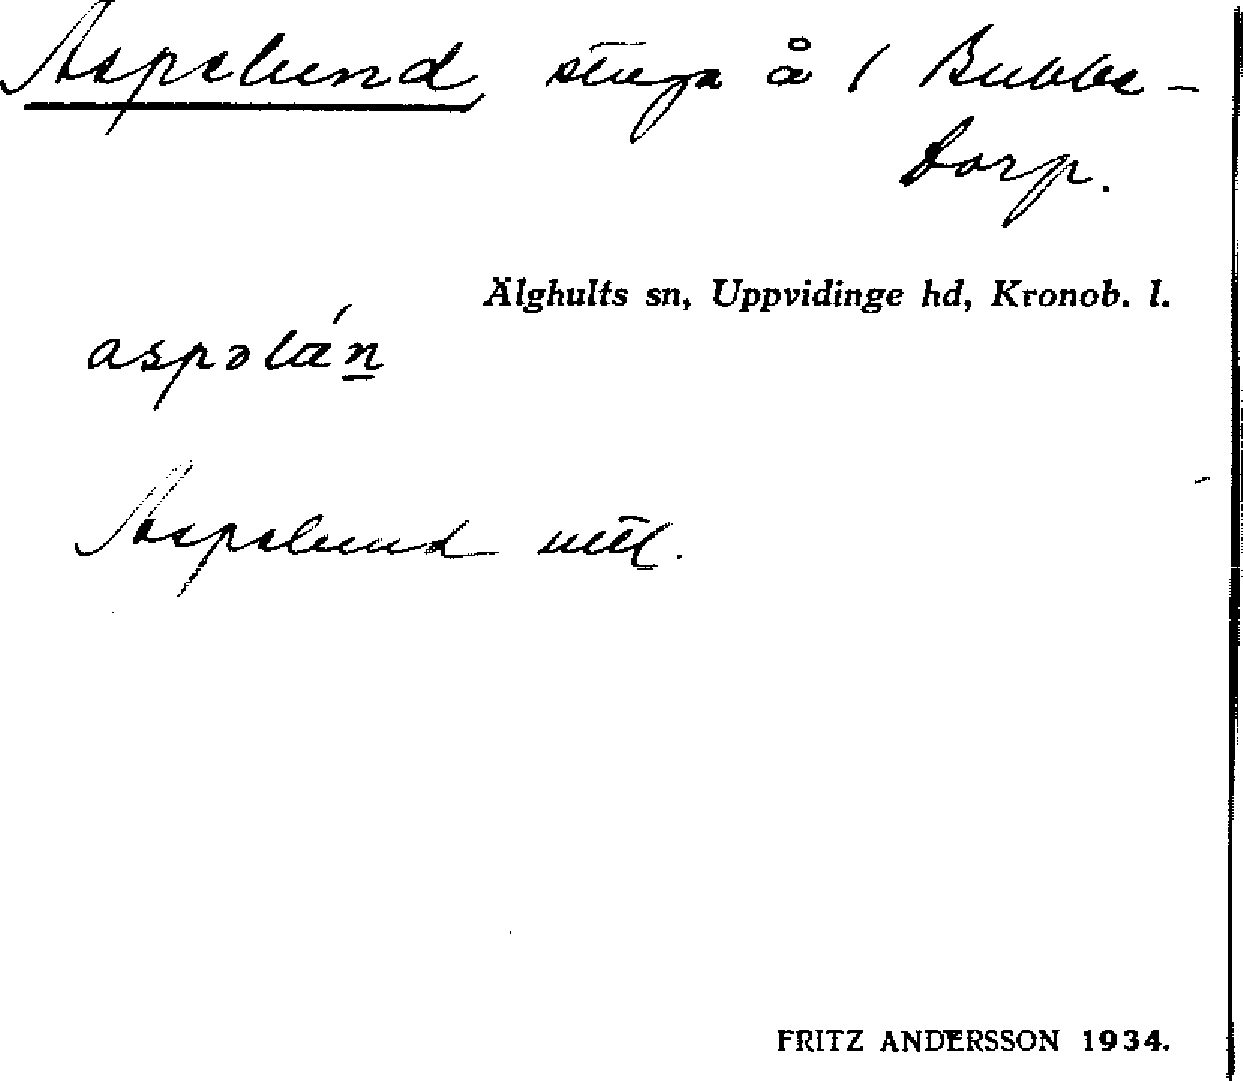 Aspelund, stuga å 1 Bubbe-
torp.
Älghults sn, Uppvidinge hd, Kronob. l.
aspəlán̲
Aspelund uttl.
FRITZ ANDERSSON 1934.